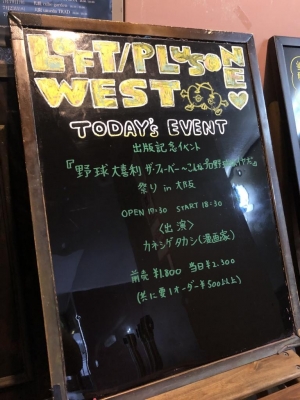 LOFT/PLUSONE
WEST
TODAY's EVENT
出版記念イベント
『野球大喜利 ザ・フィーバー〜こんなプロ野球はイヤだ』
祭り in 大阪
OPEN 17:30 START 18:30
〈出演〉
カネシゲタカシ(漫画家)
前売 ¥1,800 当日 ¥2,300
(共に要1オーダー¥500以上)